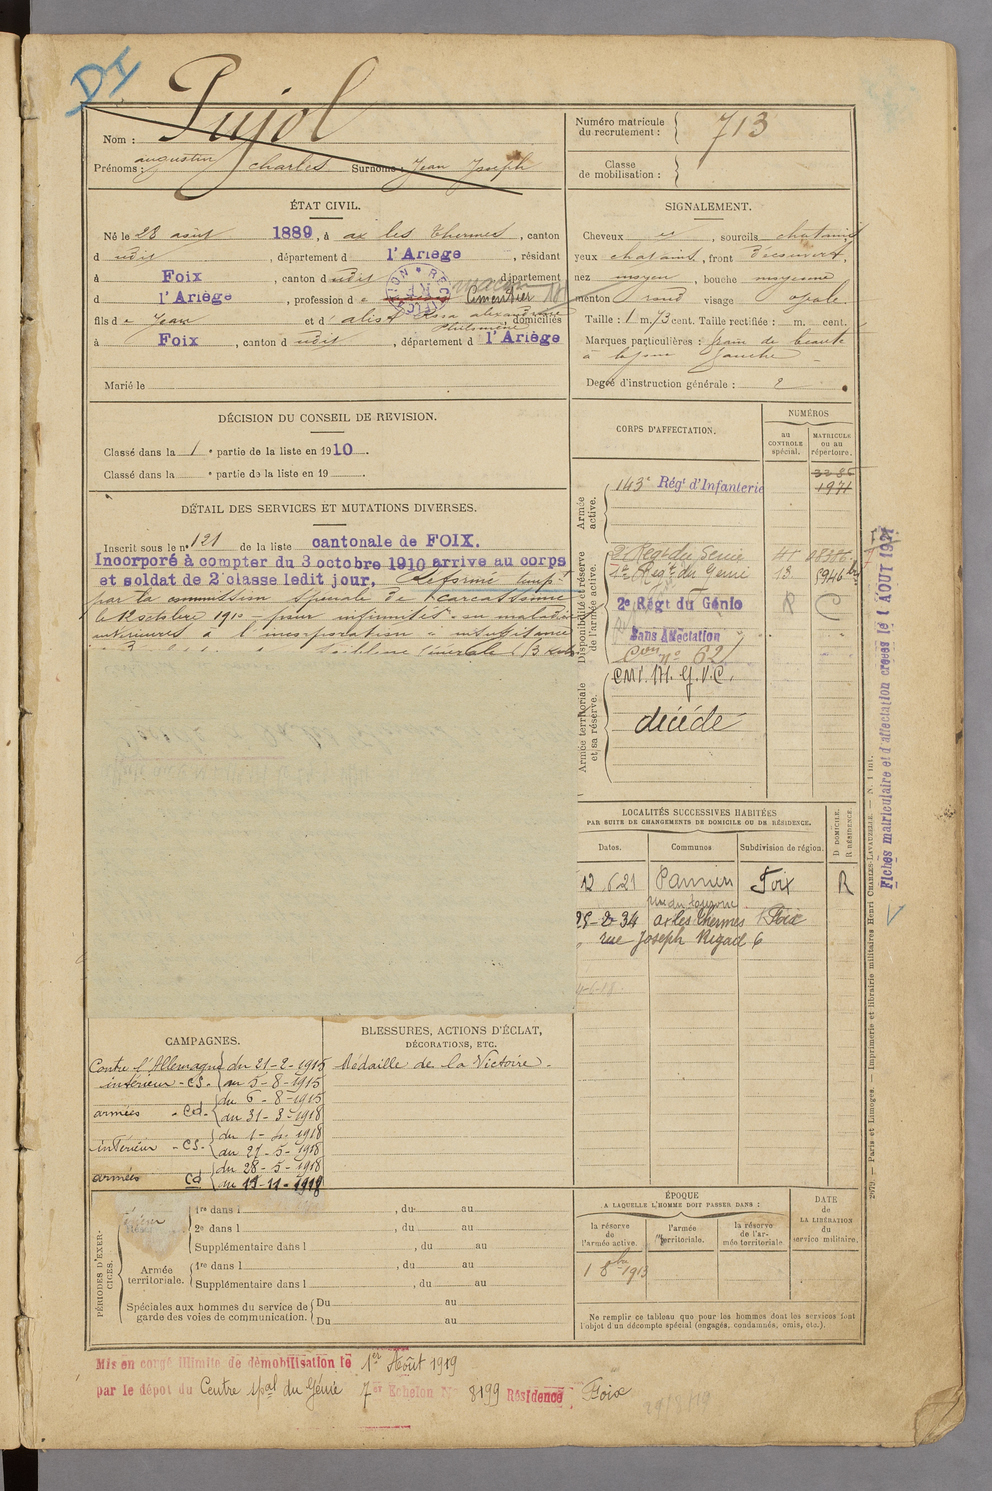 DI
Nom : Pujol
Prénoms : augustin charles Surnoms : Jean Joseph
Numéro matricule du recrutement : 713
Classe de mobilisation :
ÉTAT CIVIL.
Né le 28 août 1889, à ax les Thermes, canton
d udit, département d l'Ariège, résidant
à Foix, canton d udit, département
d l'Ariège, profession d e Cimentier
fils d e Jean et d alist Rosa alexandrine Philomène, domiciliés
à Foix, canton d udit, département d l'Ariège
Marié le
SIGNALEMENT.
Cheveux et, sourcils chatains
yeux chatains, front découvert,
nez moyen, bouche moyenne
menton rond visage ovale.
Taille : 1 m. 73 cent. Taille rectifiée : m. cent.
Marques particulières : grain de beauté
à la joue gauche
Degré d'instruction générale : 2
DÉCISION DU CONSEIL DE REVISION.
Classé dans la 1e partie de la liste en 1910.
Classé dans la e partie de la liste en 19
DÉTAIL DES SERVICES ET MUTATIONS DIVERSES.
Inscrit sous le n° 121 de la liste cantonale de FOIX.
Incorporé à compter du 3 octobre 1910 arrive au corps
et soldat de 2e classe ledit jour, Réformé temp.t
par la commission spéciale de Carcassonne
le 12 octobre 1910 pour infirmités ou maladies
antérieures à l'incorporation
CORPS D'AFFECTATION.
NUMÉROS
au CONTROLE spécial.
MATRICULE ou au répertoire.
Armée active.
143e Régt d'Infanterie
3285
1971
Disponibilité et réserve de l'armée active.
2e Régt du Génie
2e Regt du Génie 13
2e Régt du Génie
Sans Affectation
Con n° 62
Armée territoriale et sa réserve.
décédé
LOCALITÉS SUCCESSIVES HABITÉES
PAR SUITE DE CHANGEMENTS DE DOMICILE OU DE RÉSIDENCE.
Dates. Communes Subdivision de région. D DOMICILE. R RÉSIDENCE.
12 6 21 Pamiers Foix R
25-2-34 ax les Thermes Foix
rue Joseph Rigad 6
Fiches matriculaire et d'affectation créées le 1 AOUT 1921
2879. — Paris et Limoges. — Imprimerie et librairie militaires Henri CHARLES-LAVAUZELLE. — N. 1 int.
CAMPAGNES.
Contre l'Allemagne du 21-2-1915
intérieur - CS - au 5-8-1915
du 6-8-1915
armées - Cd - au 31-3-1918
du 1-4-1918
intérieur - CS - au 27-5-1918
du 28-5-1918
armées Cd au 11-11-1918
BLESSURES, ACTIONS D'ÉCLAT,
DÉCORATIONS, ETC.
Médaille de la Victoire.
PÉRIODES D'EXERCICES.
1re dans l , du au
2e dans l , du au
Supplémentaire dans l , du au
Armée territoriale.
1re dans l , du au
Supplémentaire dans l , du au
Spéciales aux hommes du service de garde des voies de communication.
Du au
Du au
ÉPOQUE
A LAQUELLE L'HOMME DOIT PASSER DANS :
la réserve de l'armée active.
l'armée territoriale.
la réserve de l'armée territoriale
DATE de LA LIBÉRATION du service militaire.
1 8bre 1913
Ne remplir ce tableau que pour les hommes dont les services font l'objet d'un décompte spécial (engagés, condamnés, omis, etc.).
Mis en congé illimité de démobilisation le 1er Août 1919
par le dépôt du Centre spal du Génie 7er Echelon No 8199 Résidence, Foix